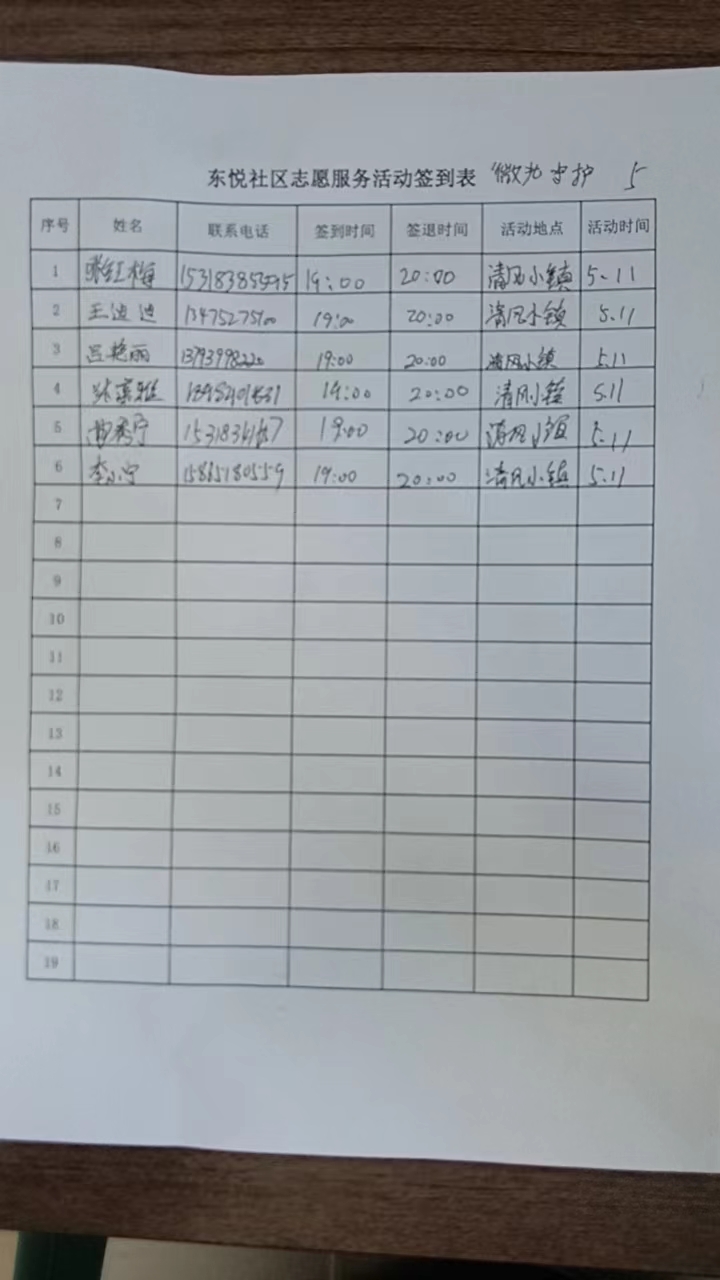 东悦社区志愿服务活动签到表 "微光守护 5
序号 姓名 联系电话 签到时间 签退时间 活动地点 活动时间
1 张红梅 19:00 20:00 清风小镇 5.11
2 王迪迪 13475275100 19:00 20:00 清风小镇 5.11
3 吕艳丽 13793998220 19:00 20:00 清风小镇 5.11
4 19:00 20:00 清风小镇 5.11
5 曹秀宁 19:00 20:00 清风小镇 5.11
6 李小宁 15865180559 19:00 20:00 清风小镇 5.11
7
8
9
10
11
12
13
14
15
16
17
18
19